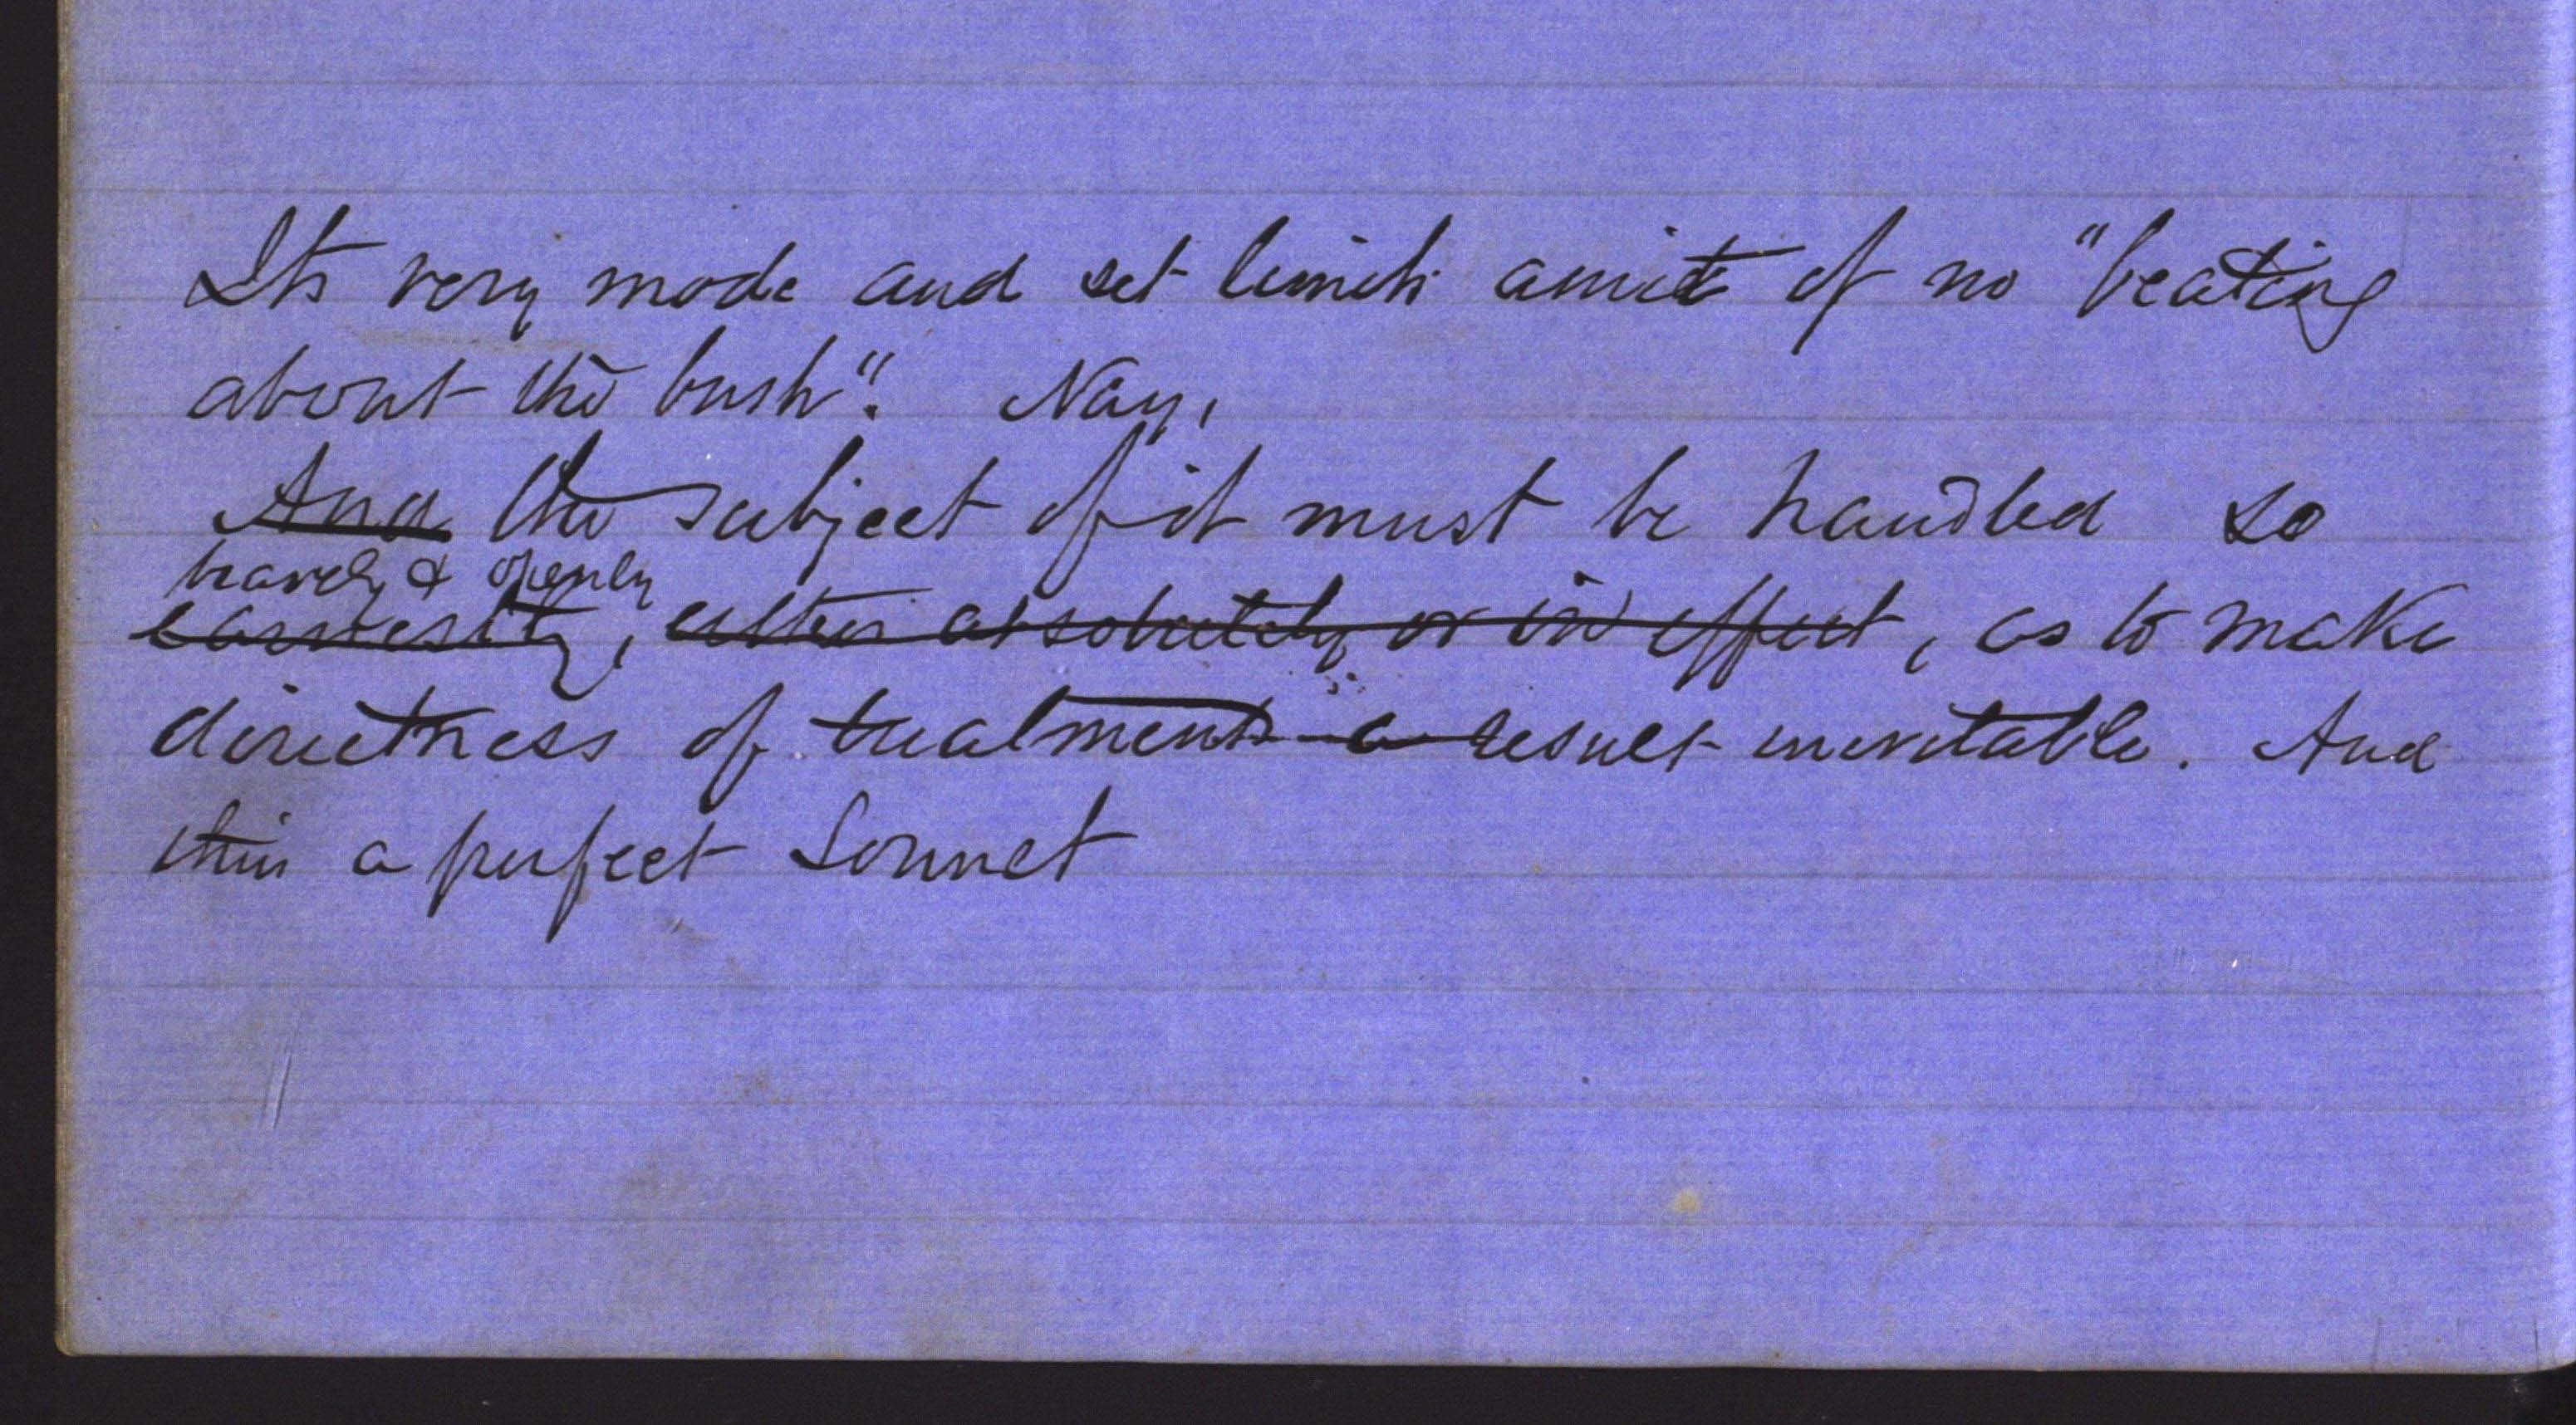 Its very mode and set limits admit of no "beating
about the bush". Nay,
And the subject of it must be handled so
bravely & openly
earnestly, either absolutely or in effect, as to make
directness of treatment a result inevitable. And
this a perfect Sonnet